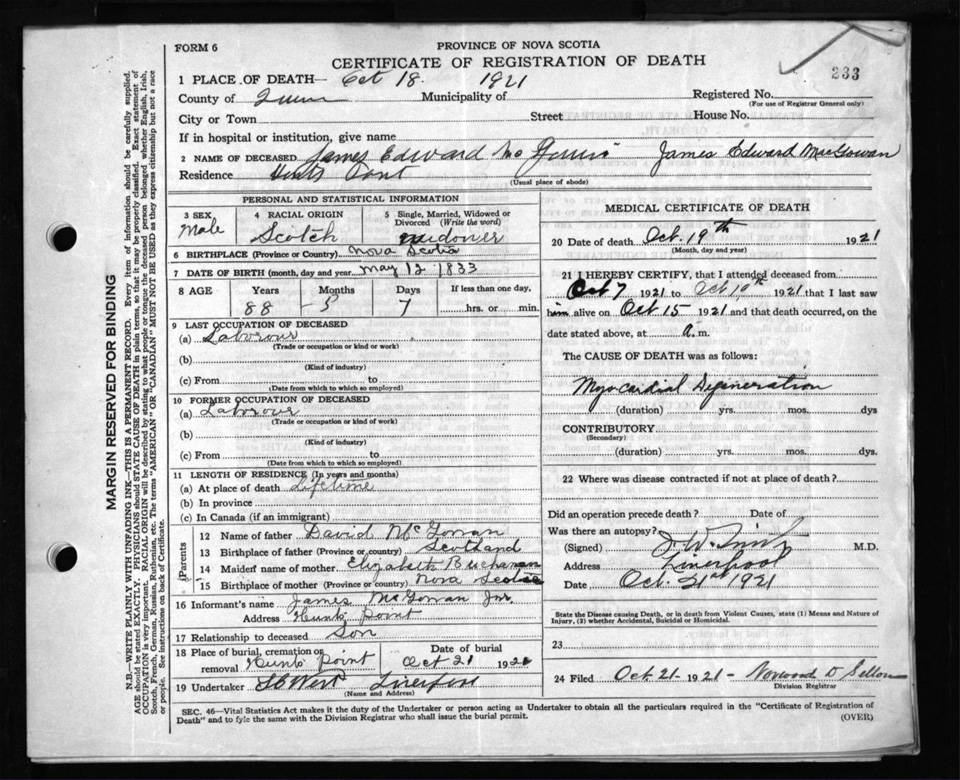 FORM 6
PROVINCE OF NOVA SCOTIA
CERTIFICATE OF REGISTRATION OF DEATH
233
1 PLACE OF DEATH— Oct 18. 1921
County of Municipality of Registered No.
(For use of Registrar General only)
City or Town Street House No.
If in hospital or institution, give name
2 NAME OF DECEASED James Edward Mc James Edward MacGowan
Residence Hunts Point
(Usual place of abode)
PERSONAL AND STATISTICAL INFORMATION
3 SEX
Male
4 RACIAL ORIGIN
Scotch
5 Single, Married, Widowed or Divorced (Write the word)
Widower
6 BIRTHPLACE (Province or Country) Nova Scotia
7 DATE OF BIRTH (month, day and year) May 12 1833
8 AGE Years Months Days If less than one day,
88 – 5 7 hrs. or min.
9 LAST OCCUPATION OF DECEASED
(a) Labourour
(Trade or occupation or kind of work)
(b)
(Kind of industry)
(c) From to
(Date from which to which so employed)
10 FORMER OCCUPATION OF DECEASED
(a) Labourour
(Trade or occupation or kind of work)
(b)
(Kind of industry)
(c) From to
(Date from which to which so employed)
11 LENGTH OF RESIDENCE (In years and months)
(a) At place of death Lifetime
(b) In province
(c) In Canada (if an immigrant)
Parents
12 Name of father David McGowan
13 Birthplace of father (Province or country) Scotland
14 Maiden name of mother Elizabeth Buchanan
15 Birthplace of mother (Province or country) Nova Scotia
16 Informant's name James McGowan Jnr.
Address Hunts Point
17 Relationship to deceased Son
18 Place of burial, cremation or removal Hunts Point
Date of burial Oct 21 1921
19 Undertaker West Liverpool
(Name and Address)
MEDICAL CERTIFICATE OF DEATH
20 Date of death Oct. 19th 1921
(Month, day and year)
21 I HEREBY CERTIFY, that I attended deceased from
Oct 7 1921 to Oct 19th 1921 that I last saw
him alive on Oct 15 1921 and that death occurred, on the
date stated above, at a.m.
The CAUSE OF DEATH was as follows:
Myocardial Degeneration
(duration) yrs. mos. dys
CONTRIBUTORY
(Secondary)
(duration) yrs. mos. dys.
22 Where was disease contracted if not at place of death?
Did an operation precede death? Date of
Was there an autopsy?
(Signed) M.D.
Address Liverpool
Date Oct. 21st 1921
State the Disease causing Death, or in death from Violent Causes, state (1) Means and Nature of Injury, (2) whether Accidental, Suicidal or Homicidal.
23
24 Filed Oct 21 - 1921 - Norwood D
Division Registrar
SEC. 46—Vital Statistics Act makes it the duty of the Undertaker or person acting as Undertaker to obtain all the particulars required in the "Certificate of Registration of
Death" and to fyle the same with the Division Registrar who shall issue the burial permit.
(OVER)
MARGIN RESERVED FOR BINDING
N.B.—WRITE PLAINLY WITH UNFADING INK—THIS IS A PERMANENT RECORD. Every item of information should be carefully supplied.
AGE should be stated EXACTLY. PHYSICIANS should STATE CAUSE OF DEATH in plain terms, so that it may be properly classified. Exact statement of
OCCUPATION is very important. RACIAL ORIGIN will be described by stating to what people or tongue the deceased person belonged whether English, Irish,
Scotch, French, German, Russian, Ruthenian, etc. The terms "AMERICAN" OR "CANADIAN" MUST NOT BE USED as they express citizenship but not a race
or people. See instructions on back of Certificate.